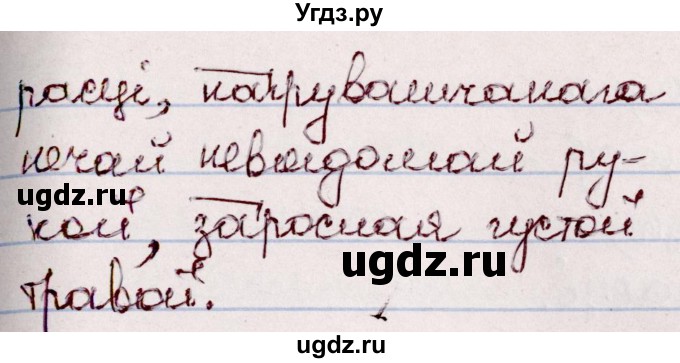 Угдз.ру
расці,
нечай невядомай ру-
кой, заросшая густой
травой.
ugdz.ru
ugdz.ru
ugdz.ru
ugdz.ru